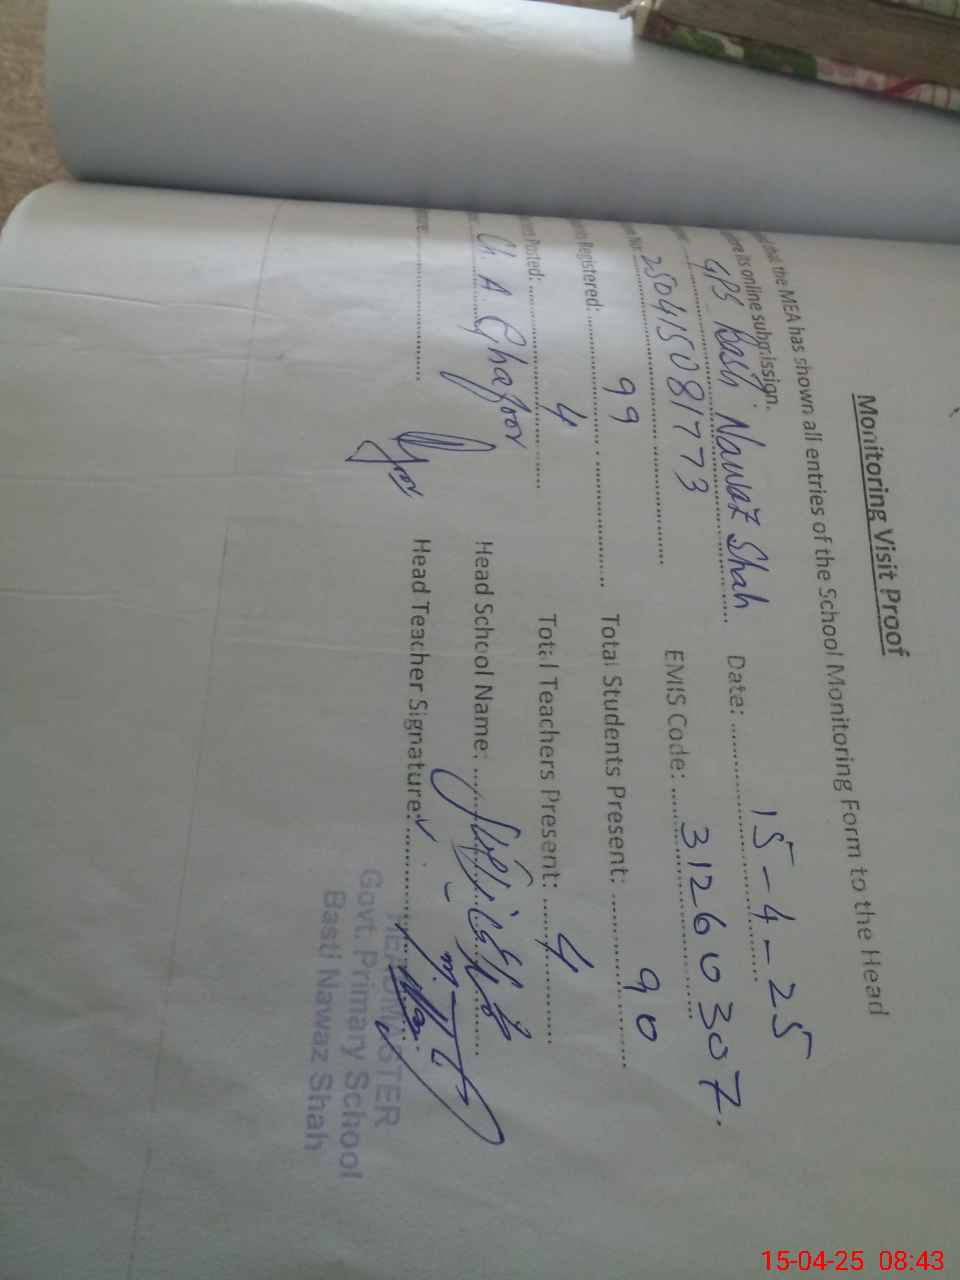 Monitoring Visit Proof
that the MEA has shown all entries of the School Monitoring Form to the Head
its online submission.
GPS Basti Nawaz Shah Date: 15-4-25
250415081773 EMIS Code: 31260307.
Registered: 99 Total Students Present: 90
Posted: 4 Total Teachers Present: 4
Ch. A. Ghafoor Head School Name:
Head Teacher Signature:
HEADMASTER
Govt. Primary School
Basti Nawaz Shah
15-04-25 08:43